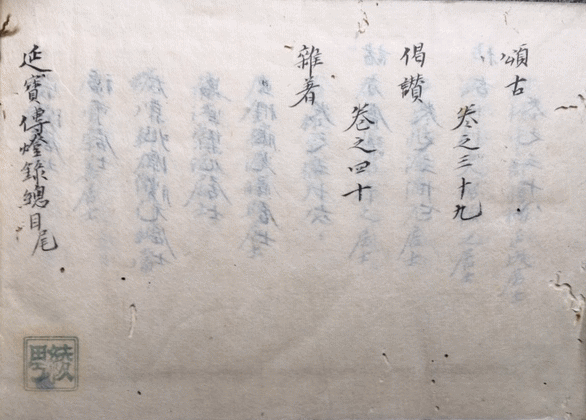 頌古
卷之三十九
偈讃
卷之四十
雜著
延寶傳燈錄總目尾